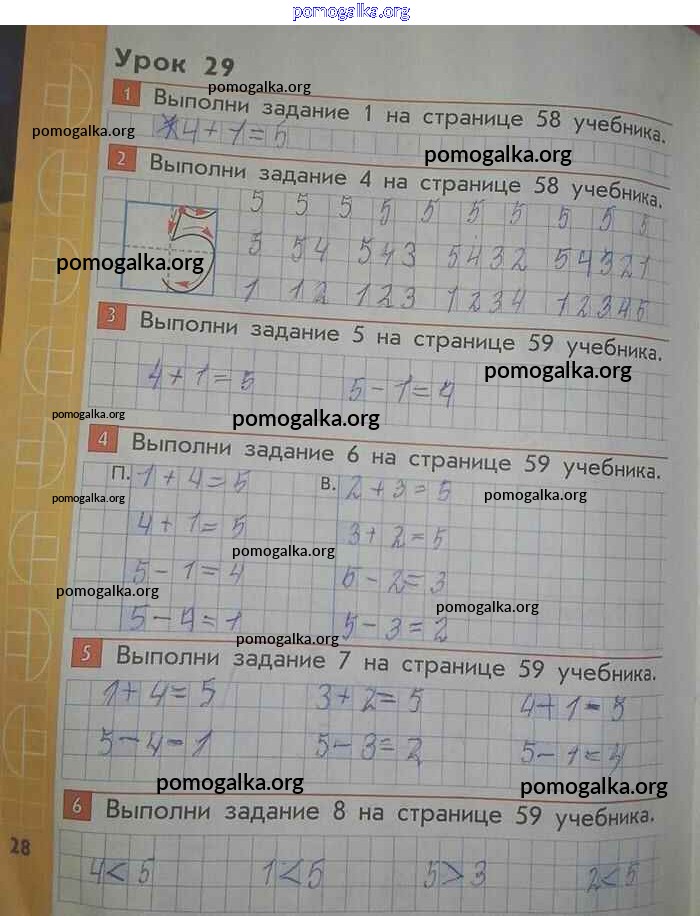 pomogalka.org
Урок 29
pomogalka.org
1 Выполни задание 1 на странице 58 учебника.
pomogalka.org
4+1=5
pomogalka.org
2 Выполни задание 4 на странице 58 учебника.
5 5 5 5 5 5 5 5 5 5
5 54 543 5432 54321
pomogalka.org
1 12 123 1234 12345
3 Выполни задание 5 на странице 59 учебника.
4+1=5 5-1=4
pomogalka.org
pomogalka.org
pomogalka.org
4 Выполни задание 6 на странице 59 учебника.
П. 1+4=5 В. 2+3=5
pomogalka.org
pomogalka.org
4+1=5 3+2=5
pomogalka.org
5-1=4 5-2=3
pomogalka.org
pomogalka.org
5-4=1 5-3=2
pomogalka.org
5 Выполни задание 7 на странице 59 учебника.
1+4=5 3+2=5 4+1=5
5-4=1 5-3=2 5-1=4
pomogalka.org
pomogalka.org
6 Выполни задание 8 на странице 59 учебника.
28
4<5 1<5 5>3 2<5